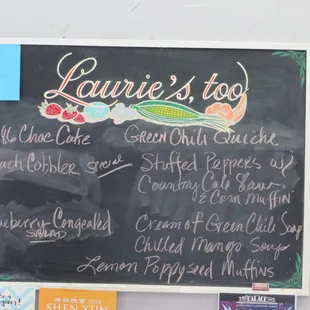 Laurie's, too
Choc Cake
Green Chili Quiche
Cobbler special
Stuffed Peppers w/
Country Cole Slaw
& Corn Muffin
Congealed
SALAD
Cream of Green Chili Soup
Chilled Mango Soup
Lemon Poppyseed Muffins
2018
SHEN YUN
PALACE